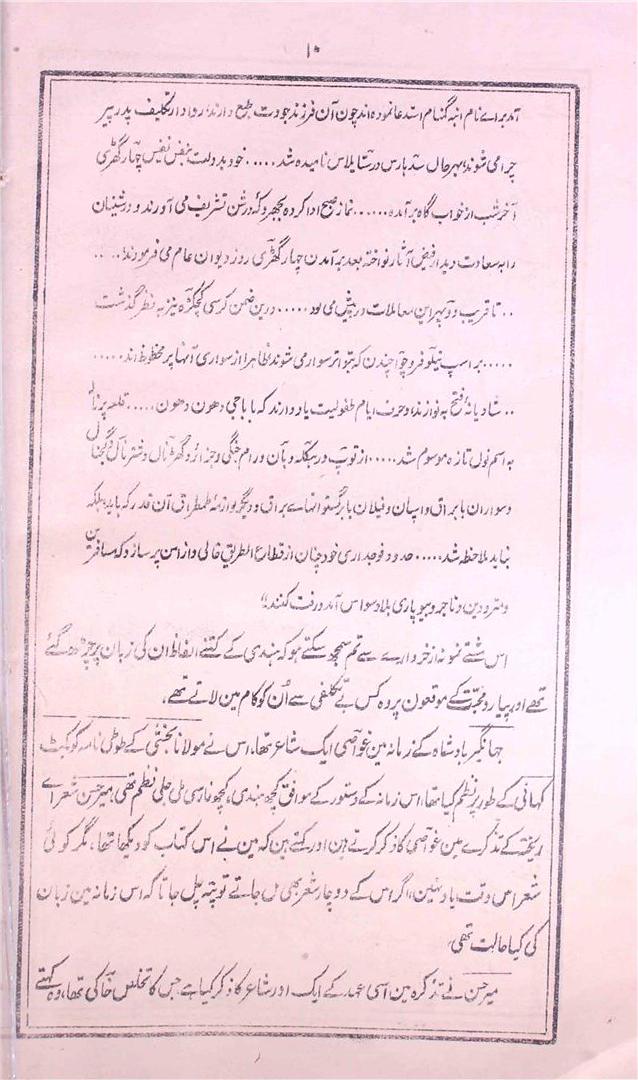 ۱۰
آمد برائے نام انبہ گمنام استدعا نمودہ اند چون آن فرزند جودت طبع دارند، روادار تکلیف پدر پیر
چرا می شوند، بہر حال سدہارس ورسنابلاس نامیدہ شد ..... خود بدولت بنفس نفیس چہار گھڑی
آخر شب از خواب گاہ بر آمدہ ..... نماز صبح ادا کردہ بجھروکۂ درشن تشریف می آورند و درشنیان
را بہ سعادت دیدار فیض آثار نواختہ بعد بر آمدن چہار گھڑی روز دیوان عام می فرمودند، .....
.. تا قریب دوپہر این معاملات در پیش می بود ..... درین ضمن کرسی کچکڑہ نیز بہ نظر گذشت
..... بر اسپ نیلو فر و چوآ چندن کہ بتواتر سوار می شوند ظاہرا از سواری آنہا پر محظوظ اند .....
.. شادیانۂ فتح بہ نوازند، و حرف ایام طفولیت یاد دارند کہ باباجی دھون دھون ..... قلعہ پرنالہ
بہ اسم نول تازہ موسوم شد ..... از توپ و رہکلہ و بان و رام جنگی و جزائر و گھڑنال و شترنال و گجنال
و سواران با براق و اسپان و فیلان با برگستوانہاے براق و دیگر لوازمۂ طمطراق آن قدر کہ باید بلکہ
نباید ملاحظہ شد ..... حدود فوجداری خود چنان از قطاع الطریق خالی و از امن پر سازد کہ مسافرین
و مترودین و تاجر و بیوپاری بلا وسواس آمد و رفت کنند"
اس مشتے نمونہ از خروارے سے تم سمجھ سکتے ہو کہ ہندی کے کتنے الفاظ ان کی زبان پر چڑھ گئے
تھے اور پیار و محبت کے موقعون پر وہ کس بے تکلفی سے اُن کو کام مین لاتے تھے،
جہانگیر بادشاہ کے زمانہ مین غواصی ایک شاعر تھا، اس نے مولانا نخشبی کے طوطی نامہ کو کبٹ
کہانی کے طور پر نظم کیا تھا، اس زمانہ کے دستور کے موافق کچھ ہندی، کچھ فارسی ملی جلی نظم تھی، میر حسن شعرائے
ریختہ کے تذکرے مین غواصی کا ذکر کرتے ہین اور کہتے ہین کہ مین نے اس کتاب کو دیکھا تھا، مگر کوئی
شعر اس وقت یاد نہین، اگر اس کے دو چار شعر بھی مل جاتے تو پتہ چل جاتا کہ اس زمانہ مین زبان
کی کیا حالت تھی،
میر حسن نے تذکرہ مین اسی عہد کے ایک اور شاعر کا ذکر کیا ہے جس کا تخلص خاکی تھا، وہ کہتے